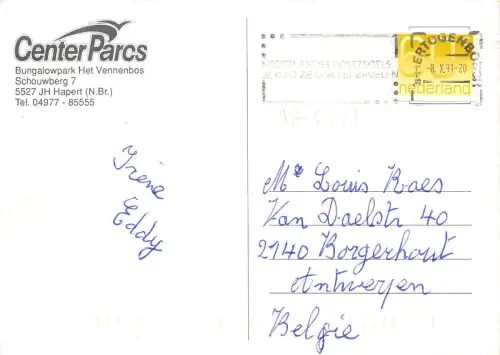 Center Parcs
Bungalowpark Het Vennenbos
Schouwberg 7
5527 JH Hapert (N.Br.)
Tel. 04977 - 85555
NEDERLANDSE POSTZEGELS
'S-HERTOGENBO
-8.X.91-20
nederland
Irene
Eddy
Mr Louis Raes
Van Daelstr 40
2140 Borgerhout
Antwerpen
Belgie